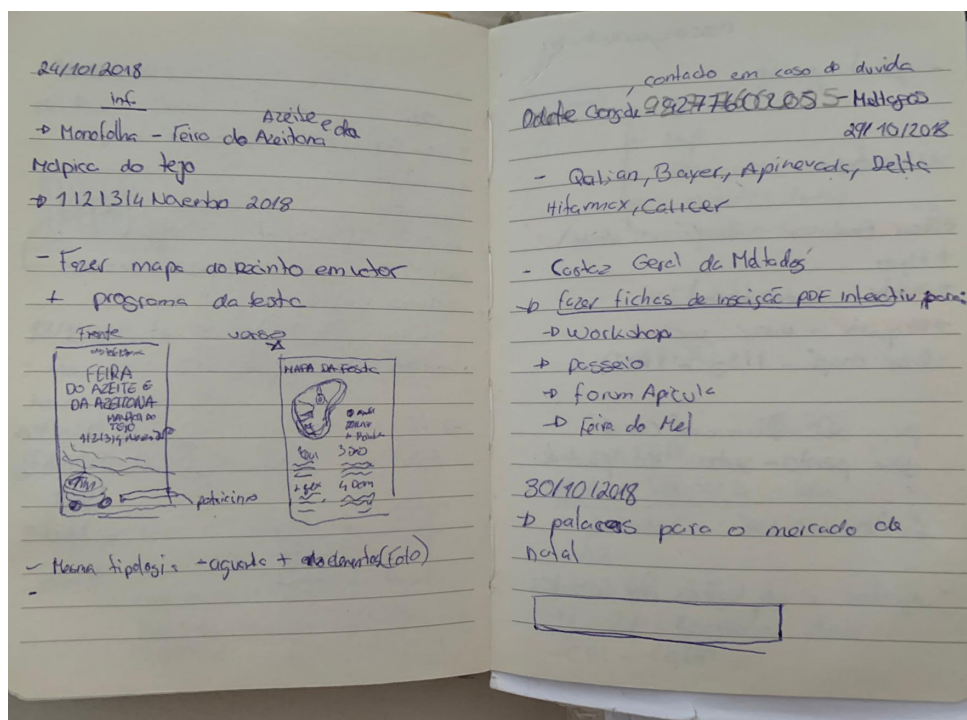 24/10/2018
Inf.
→ Monofolha - Feira do Azeite e da Azeitona
Malpica do tejo
→ 1121314 Novembro 2018
- Fazer mapa do Recinto em vetor
+ programa da festa
Frente
verso
FEIRA
DO AZEITE E
DA AZEITONA
MALPICA DO
TEJO
MAPA DA Festa
3 Sab
4 Dom
patricinio
- Mesma tipologia - aguarela + elementos (Foto)
-
contacto em caso de duvida
Odete
29/10/2018
- Qalian, Bayer, Apinevada, Delta
Hifarmax, Calicer
- Cartaz Geral da Meltagos
→ fazer fichas de inscição PDF interactiv para:
→ Workshop
→ passeio
→ forum Apicula
→ Feira do Mel
30/10/2018
→ palacas para o mercado de
Natal